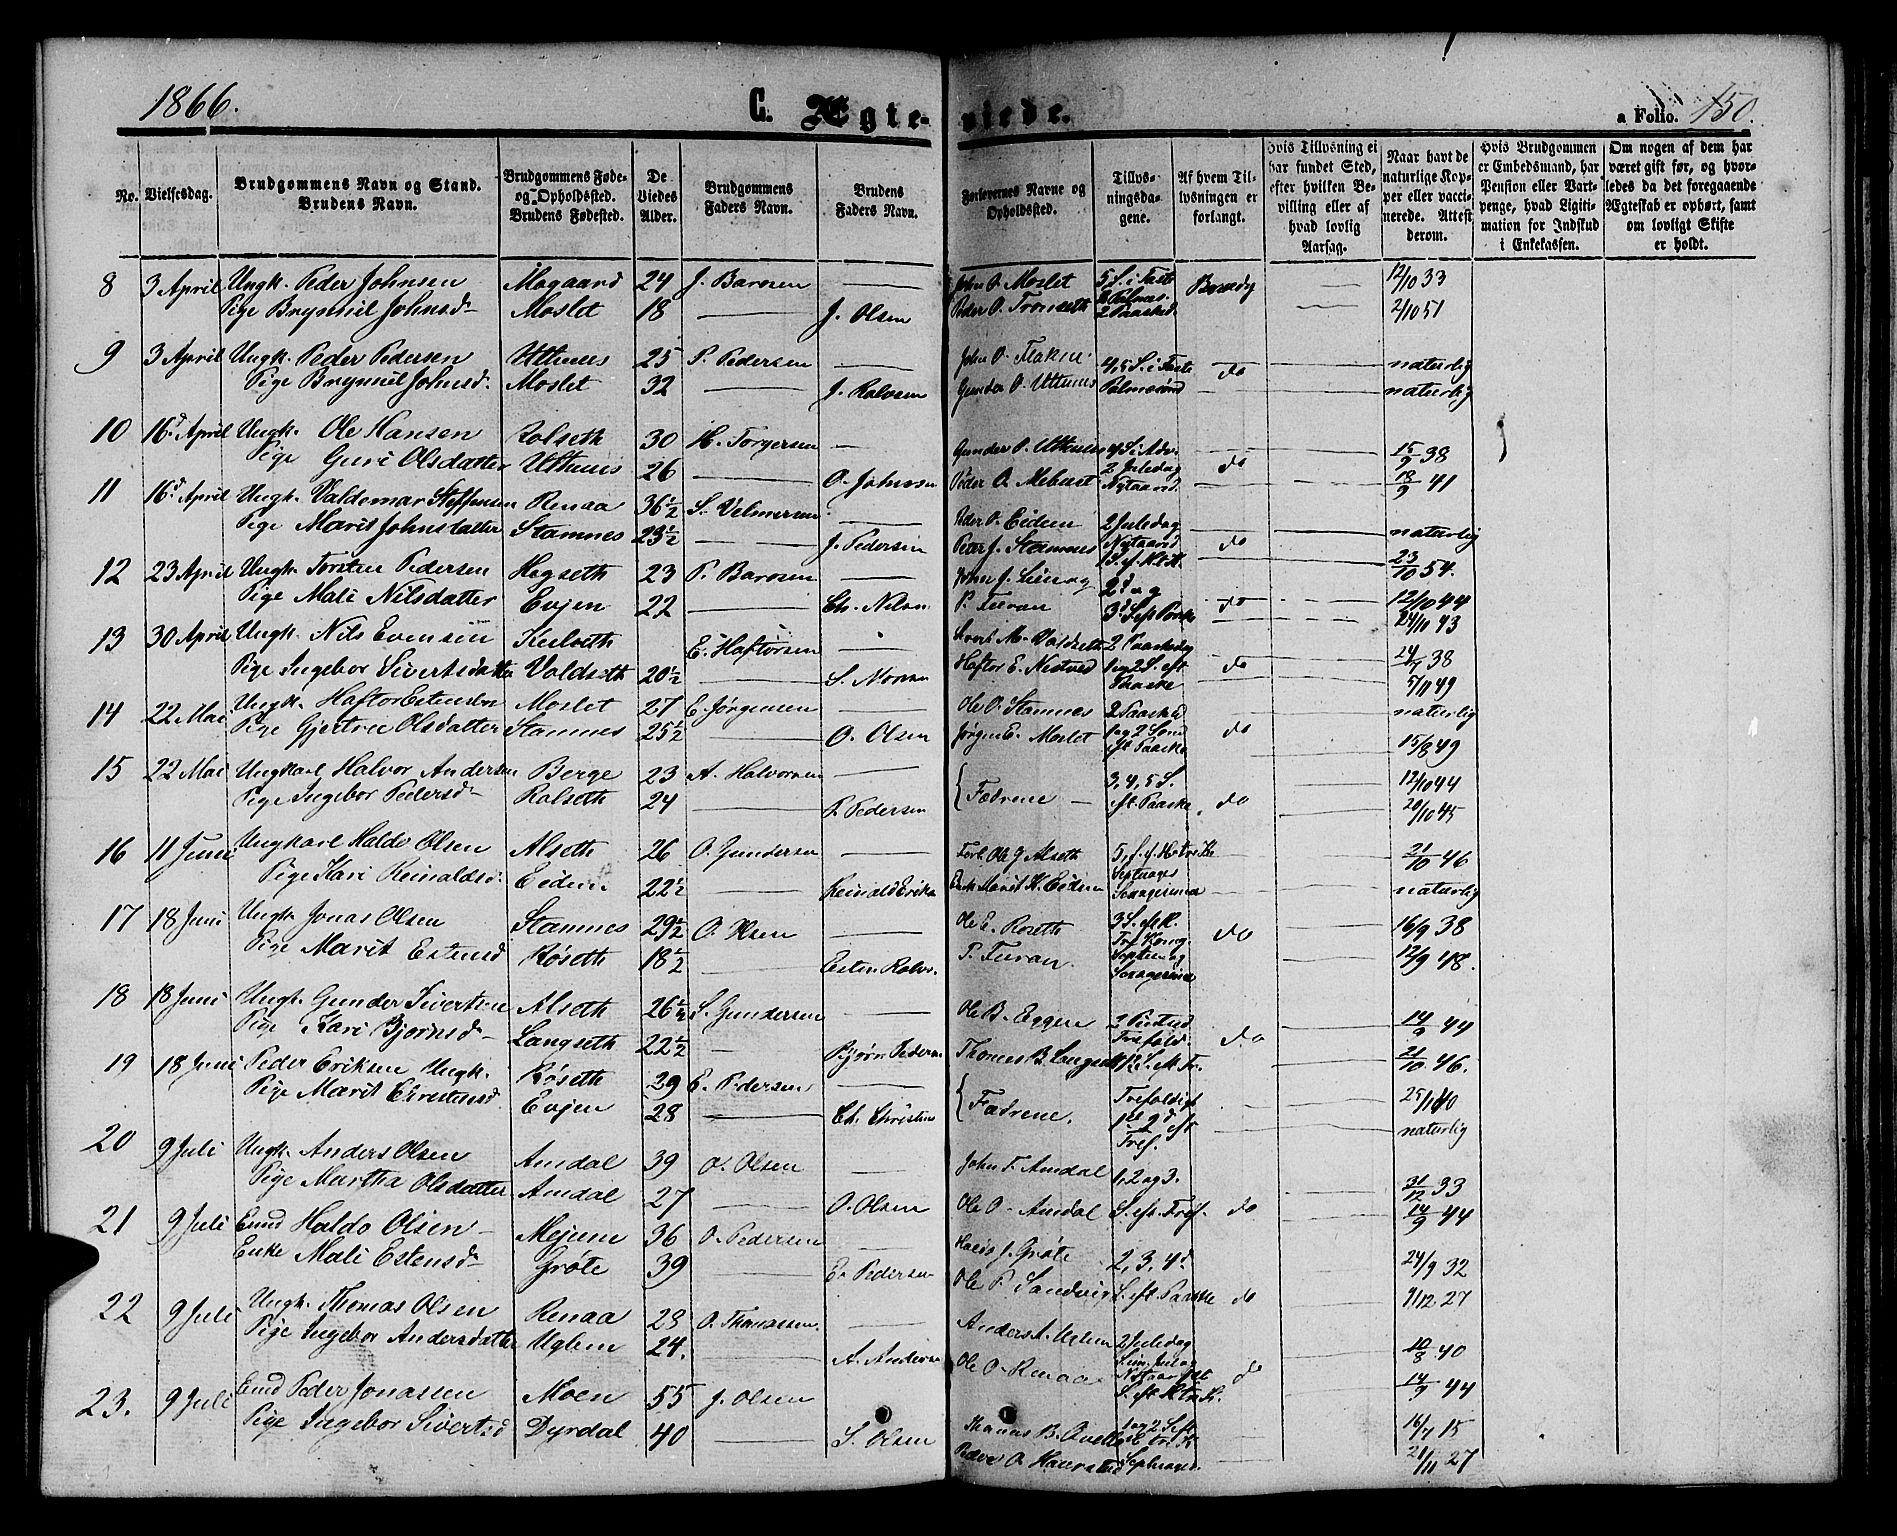 1866.
C. Ægte-
viede.
a Folio. 150.
No.
Vielsesdag.
Brudgommens Navn og Stand.
Brudens Navn.
Brudgommens Føde-
og Opholdssted.
Brudens Fødested.
De
Viedes
Alder.
Brudgommens
Faders Navn.
Brudens
Faders Navn.
Forlovernes Navne og
Opholdssted.
Tillys-
ningsda-
gene.
Af hvem Til-
lysningen er
forlangt.
Hvis Tillysning ei
har fundet Sted,
efter hvilken Be-
villing eller af
hvad lovlig
Aarsag.
Naar havt de
naturlige Kop-
per eller vacci-
nerede. Attest
derom.
Hvis Brudgommen
er Embedsmand, har
Pension eller Vart-
penge, hvad Ligiti-
mation for Indskud
i Enkekassen.
Om nogen af dem har
været gift før, og hvor-
ledes da det foregaaende
Ægteskab er ophørt, samt
om lovligt Skifte
er holdt.
8 3 April Ungk. Peder Johnsen Mogaard 24 J. Barosen — John O. Moslet 5 S. i Faste 12/10 33
Pige Brynnil Johnsd Moslet 18 — J. Olsen Peder O. Tronseth 2 Paaskd. 2/10 51
9 3 April Ungk. Peder Pedersen Uthuus 25 P. Pedersen — John O. Flaken 4, 5 S. i Faste do naturlig
Pige Brynnil Johnsd. Moslet 32 — J. Halvsen Gunder O. Uthuus Palmesønd naturlig
10 16d April Ungk. Ole Hansen Rolseth 30 H. Torgersen — Gunder O. Uthuus 4 S. i Adv. 15/9 38
Pige Guri Olsdatter Uthuus 26 — O. Johnsen Peder O. Mebust 2 Juledag Nytaarsd. do 18/9 41
11 16d April Ungk. Valdemar Steffensen Renaa 36½ S. Velmersen — Peder O. Eidem 2 Juledag naturlig
Pige Marit Johnsdatter Stamnes 23½ — J. Pedersen Peter J. Stamnes Nytaarsd do 23/10 54.
12 23 April Ungk. Torsten Pedersen Hogseth 23 P. Barosen — John J. 2d og 12/10 44
Pige Mali Nilsdatter Evjen 22 — Ch. Nilsen P. Furan do 24/10 43
13 30 April Ungk. Nils Evensen E. Haftorsen — Sivert M. Valdseth 2 Paaskedg 24/7 38
Pige Ingebor Sivertsdatter Valdseth 20½ — S. Haftor E. Nestvod 1 og 2 S. eft Paaske do 5/11 49
14 22 Mai Ungk. Haftor Estensen Moslet 27 E. Jørgensen — Ole O. Stamnes 2 Paaskd naturlig
Pige Gjertru Olsdatter Stamnes 25½ — O. Olsen Jørgen E. Moslet 1 og 2 Sønd eft Paaske do 15/8 49
15 22 Mai Ungkarl Halvor Andersen Berge 23 A. Halvorsen — { Fædrene — 3, 4, 5 S. 12/10 44
Pige Ingebor Pedersd Rolseth 24 — P. Pedersen eft Paaske do 20/10 45
16 11 Juni Ungkarl Haldo Olsen Alseth 26 O. Gundersen — Ole J. Alseth 21/10 46
Pige Kari Reinaldsd. Eidem 22½ — Reinald Eriks. Marit H. Eidem Sexagesima naturlig
17 18 Juni Ungk. Jonas Olsen Stamnes 29½ O. Olsen — Ole E. Roseth 3 S. eft 16/9 38
Pige Marit Estensd Røseth 18½ — Esten Halvs. P. Furan. Sexagesima do 12/9 48.
18 18 Juni Ungk. Gunder Sivertsen Alseth 26½ S. Gundersen — Ole B. Eggen 2 Pintsd 14/9 44
Pige Kari Bjørnsd Langseth 22½ — Bjørn Peders. Thomas B. Langseth do 21/10 46.
19 18 Juni Peder Eriksen Ungk. Røseth 29 E. Pedersen — { Fædrene. Trefoldigh 25/11 40
Pige Marit Christensd Evjen 28 — Ch. Christens Tref. naturlig
20 9 Juli Ungk. Anders Olsen Amdal 39 O. Olsen — John T. Amdal 1, 2 og 3. 31/12 33
Pige Martha Olsdatter Amdal 27 — O. Olsen Ole O. Amdal S. eft. Tref. do 14/9 44
21 9 Juli Enkd Haldo Olsen Mejme 36 O. Pedersen — J. Grøte 2, 3, 4d 24/9 32
Enke Mali Estensd Grøte 39 — E. Pedersen Ole P. Sandvig S. eft Paaske do 9/12 27
22 9 Juli Ungk. Thomas Olsen Renaa 28 O. Thomassen. — Anders A. Uglem 2 Juledag 10/8 40
Pige Ingebor Andersdatter Uglem 24. — A. Anders. Ole O. Renaa do 14/9 44
23. 9 Juli Enkd Peder Jonassen Moen 55 J. Olsen Thomas B. 1 og 2 S. eft 16/7 15
Pige Ingebor Sivertsd Dyrdal 40 — S. Olsen Peder O. Septuages. 21/11 27